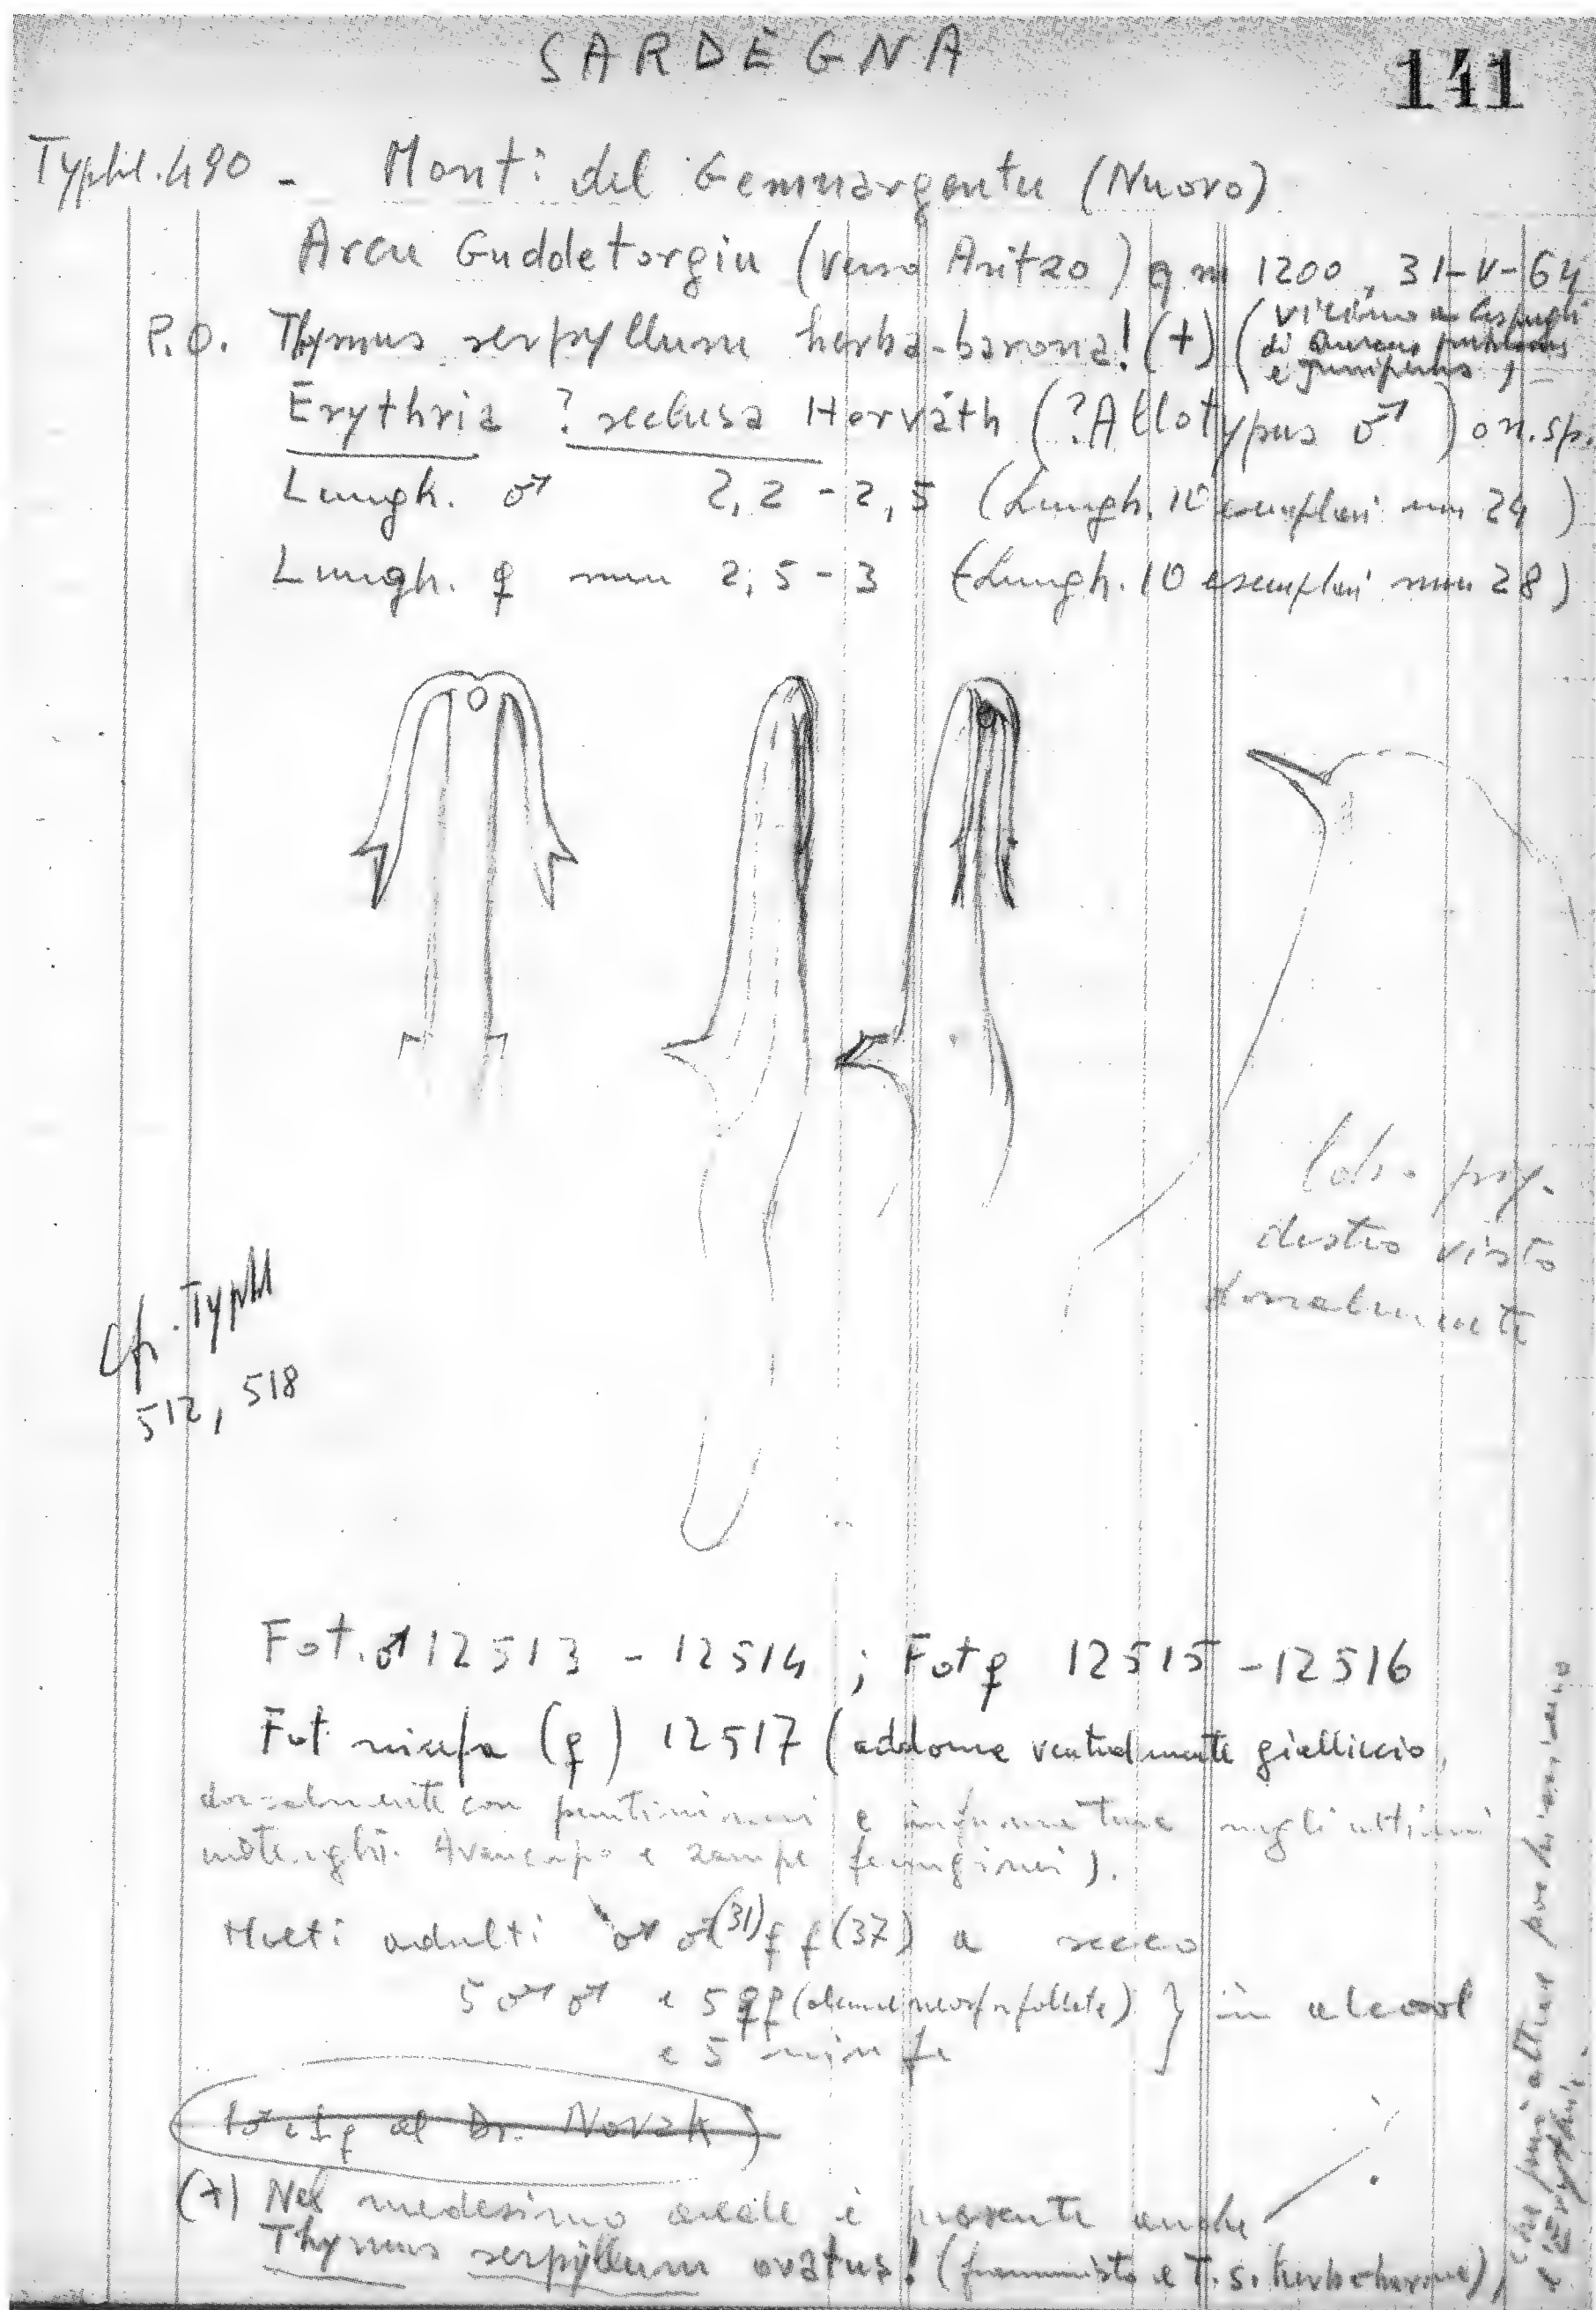 SARDEGNA
141
Typhl. 490 - Monti del Gennargentu (Nuoro)
Arcu Guddetorgiu (verso Aritzo) q m 1200, 31-V-64
P.O. Thymus serpyllum herba-barona! (+) (vicino a cespugli
di
e Juniperus)
Erythria ? seclusa Horváth (?Allotypus ♂) o n.sp.
Lungh. ♂ 2,2 - 2,5 (Lungh. 10 esemplari mm 24)
Lungh. ♀ mm 2,5 - 3 (Lungh. 10 esemplari mm 28)
Lobo pig.
destro visto
dorsalmente
Cfr. Typhl
512, 518
Fot. ♂ 12513 - 12514 ; Fot ♀ 12515 - 12516
Fot ninfa (♀) 12517 (addome ventralmente gialliccio,
dorsalmente con puntini e infumature negli ultimi
Avancorpo e zampe ferruginei).
Molti adulti ♂♂ (31) ♀♀ (37) a secco
5 ♂♂ e 5 ♀♀ } in alcool
e 5 ninfe
1♂ e 1♀ al Dr. Novak
(+) Nel medesimo areale è presente anche
Thymus serpyllum ovatus! (frammisto a T. s. herba-barona),